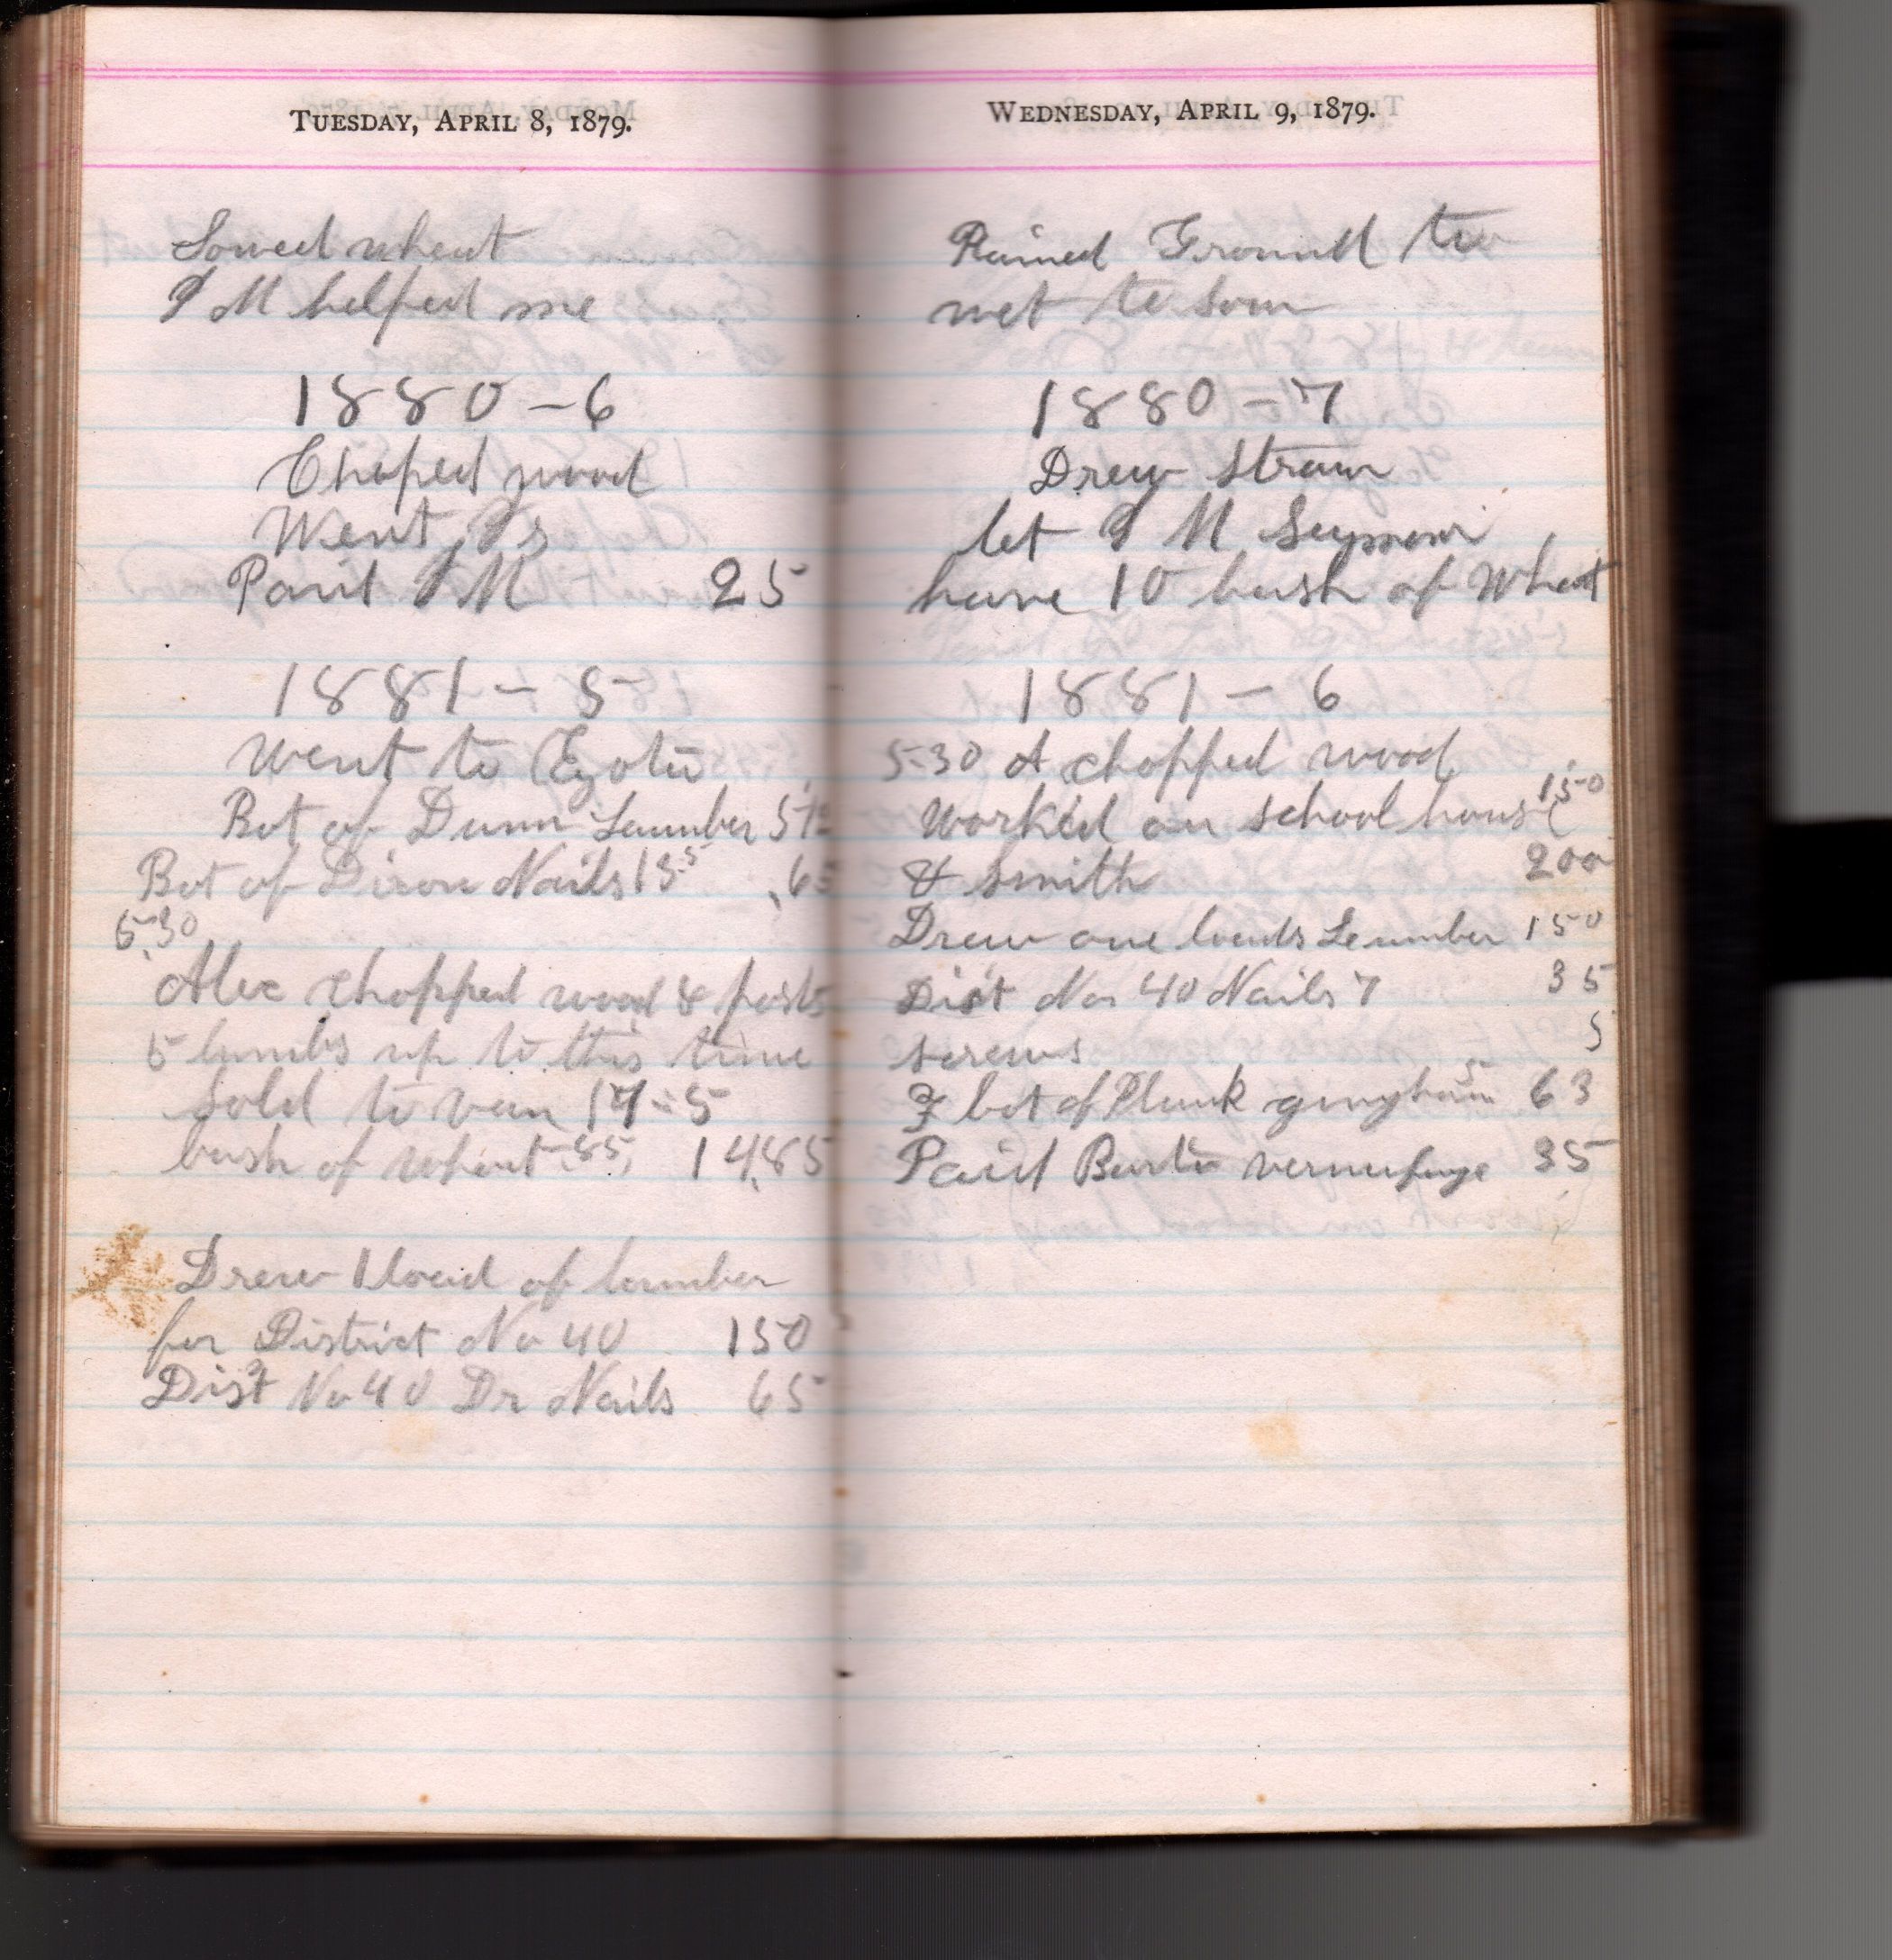 TUESDAY, APRIL 8, 1879.
Sowed wheat
I M helped me
1880-6
Choped wood
Went
Paid I M 25
1881-5
Went to Eyota
Bot of Dunn Lumber
Bot of Nails 13 .65
5.30
Alec chopped wood & posts
5 lambs up to this time
Sold to van 17-5
bush of Wheat .85, 14.85
Drew 1 load of lumber
for District No 40 150
Dist No 40 Dr Nails 65
WEDNESDAY, APRIL 9, 1879.
Rained Ground to
wet to sow
1880-7
Drew straw
let I M Seymour
have 10 bush of Wheat
1881-6
5-30 A chopped wood
Worked on school house 150
& Smith 200
Drew one loads Lumber 150
Dist No 40 Nails 7 35
screws 5
bot of Plank gingham 63
Paid Burtis vermifuge 35